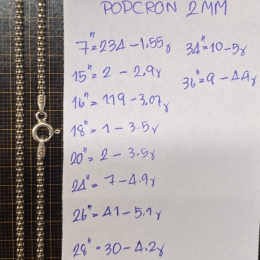 POPCRON 2MM
7"=234-1,55г
15"=2-2,9г
16"=119-3,07г
18"=1-3.5г
20"=2-3.5г
24"=7-4.9г
26"=41-5.1г
28"=30-4.2г
34"=10-5г
36"=9-4.9г